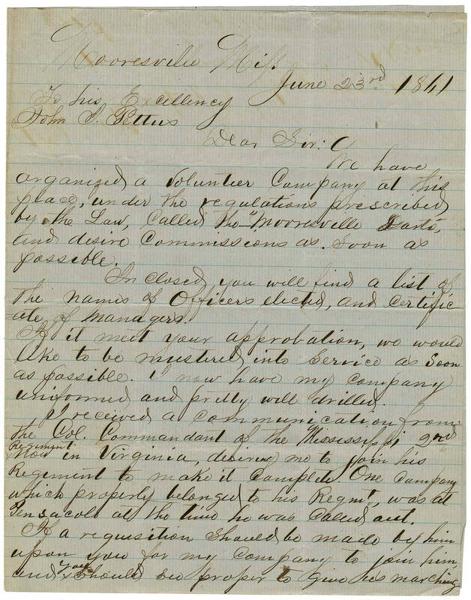 Mooresville Miss
June 23rd 1861
To his Excellency
John J. Pettus
Dear Sir:
We have
organized a Volunteer Company at this
place, under the regulations prescribed
by the Law, Called the "Mooresville Darts,
and desire Commissions as soon as
possible.
In closed, you will find a list of
the names of Officers elected, and certific
ate of managers.
If it meet your approbation, we would
like to be mustered into service as soon
as possible. I now have my company
uniformed and pretty well drilled.
I received a communication from
the Col. Commandant of the Mississippi 2nd
Regiment
Now in Virginia, desires me to join his
Regiment to make it complete. One Company
which properly belonged to his Regmt, was at
Pensacola at the time he was Called out.
If a requisition should be made by him
upon you for my Company to join him,
and you should see proper to give us marching